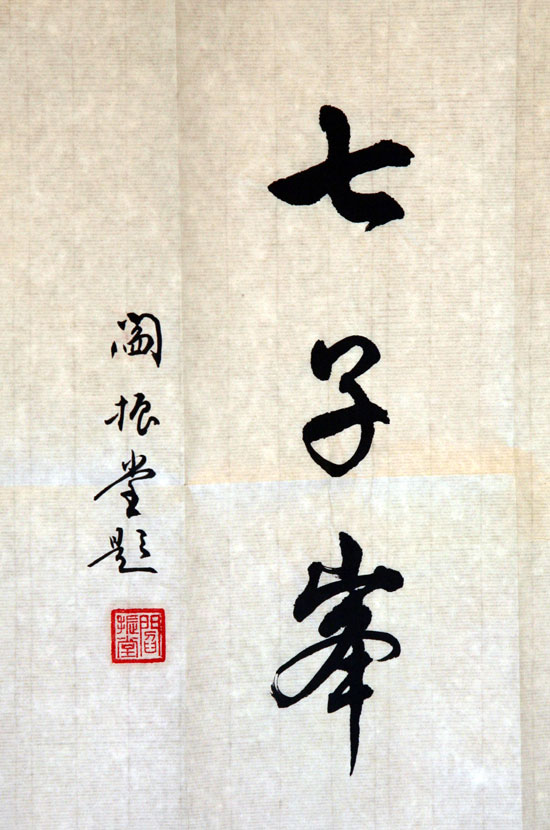 七子峯
阎振堂题
閻振堂